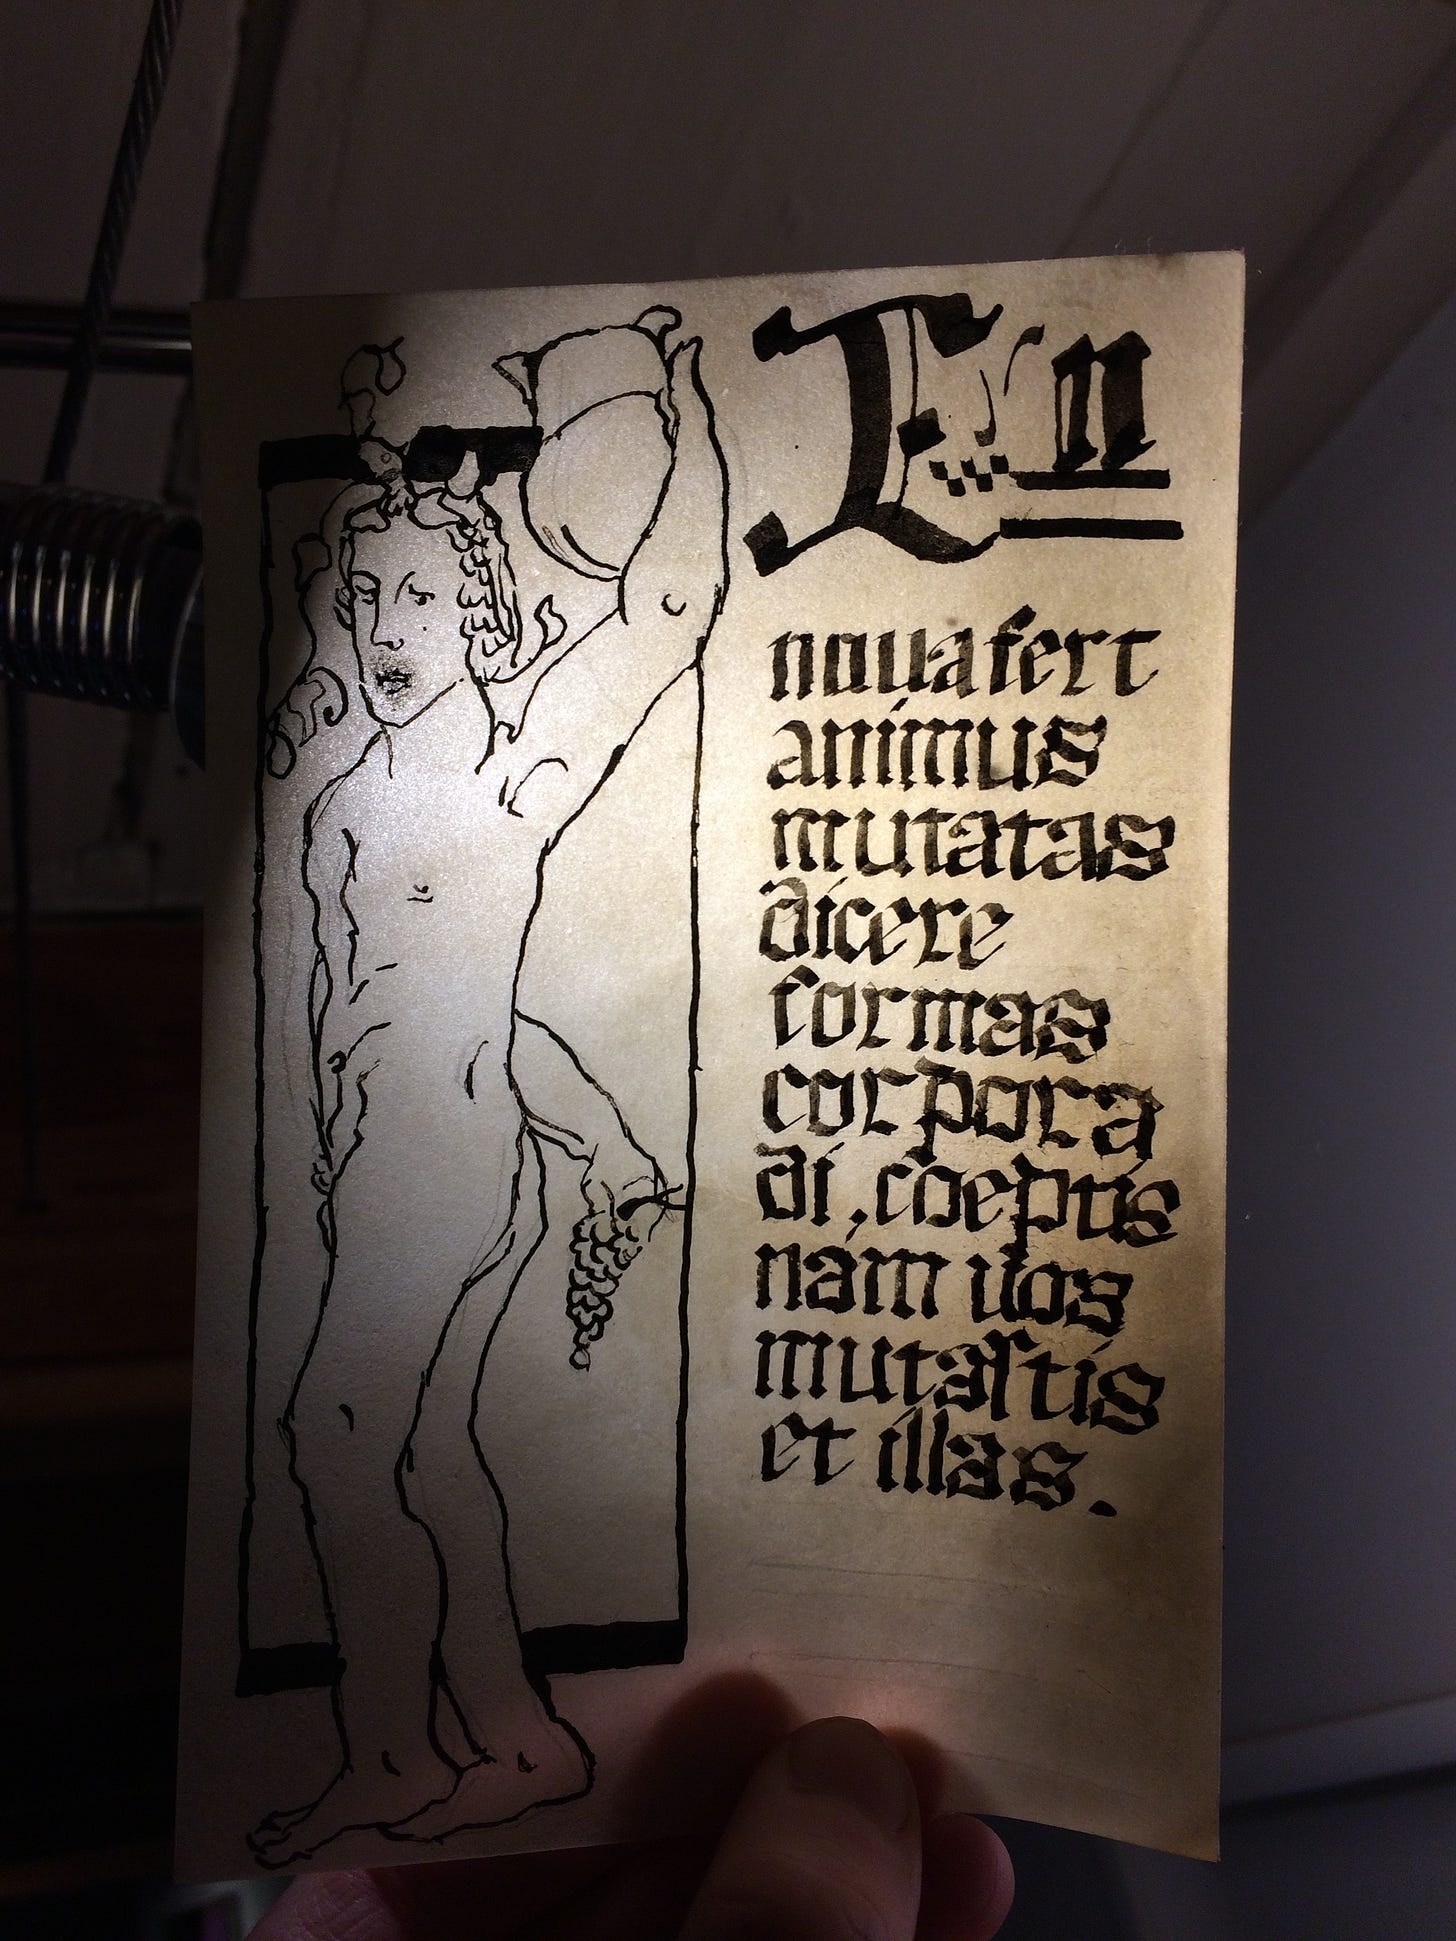 In
noua fert
animus
mutatas
dicere
formas
corpora
di, coeptis
nam vos
mutaſtis
et illas.